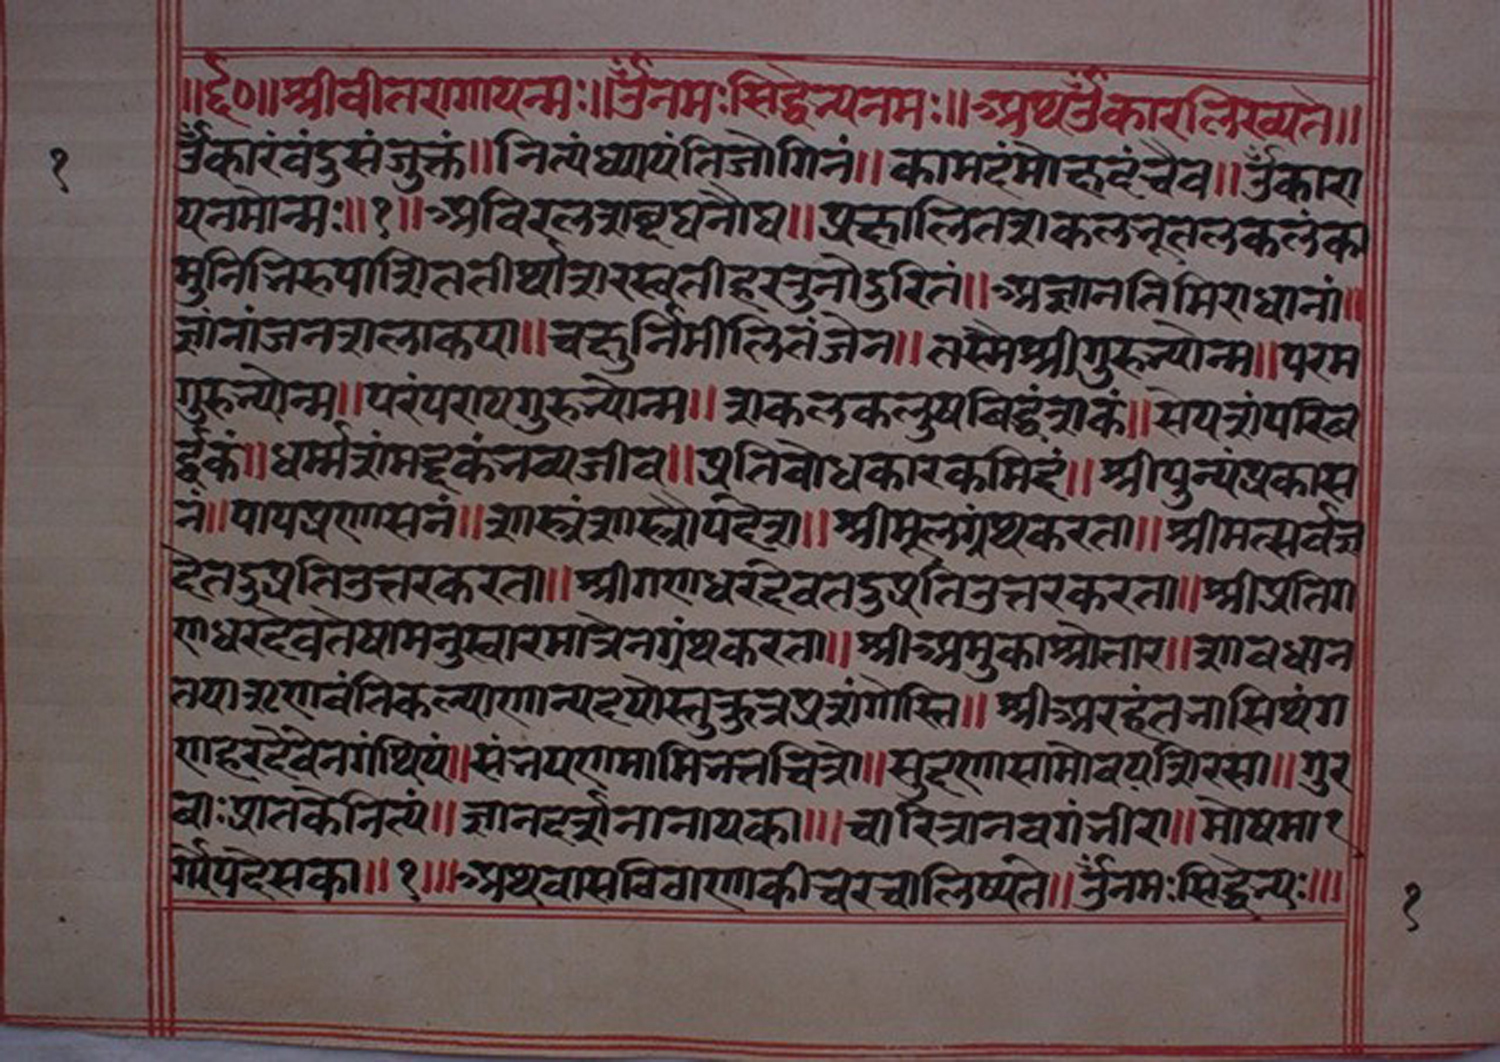 ॥र्द०॥श्रीवीतरागायन्मः॥ॐनमःसिद्धेभ्यनमः॥अथॐकारलिख्यते॥
१
ॐकारंवंदुसंजुक्तं॥नित्यंध्यायंतिजोगिनं॥कामदंमोक्षदंचैव॥ॐकारा
यनमोन्मः॥१॥अविरलशब्दघनौघ॥प्रक्षालितशकलभूतलकलंका
मुनिभिरुपाशिततीर्थाशरस्वतीहरतुनोदुरितं॥अज्ञानतिमिराधानां॥
ज्ञांनांजनशलाकया॥चक्षुर्निमीलितंजेन॥तस्मैश्रीगुरुभ्योन्म॥परम
गुरुभ्योन्म॥परंपरायगुरुभ्योन्म॥शकलकलुषबिद्धंशकं॥सेयशांपरिब
र्द्धकं॥धर्म्मशंमद्दकंभव्यजीव॥प्रतिबोधकारकमिदं॥श्रीपुन्यंप्रकास
नं॥पापप्रणासनं॥शास्त्रंशास्त्रोपदेश॥श्रीमूलग्रंथकरता॥श्रीमत्सर्वज्ञ
देतदुप्रतिउत्तरकरता॥श्रीगणधरदेवतदुप्रतिउत्तरकरता॥श्रीप्रतिग
णधरदेवतेषामनुस्वारमात्रेनग्रंथकरता॥श्रीअमुकाश्रोतार॥शावधान
तयाश्रृणवंतिकल्याणान्यदयोस्तुकुत्रप्रशंगोस्ति॥श्रीअरहंतभासियंग
णहरदेवेनगंथियं॥संभपणमामिभत्तचित्तो॥सुदणासामोवयशिरसा॥गुर
वाःप्रातकेनित्यं॥ज्ञानदर्शनानायका॥चारित्रानवगंभीरा॥मोषमा१
र्गोपदेसका॥१॥अथवासविवारणकीचरचालिष्यते॥ॐनमःसिद्धेभ्यः॥
१